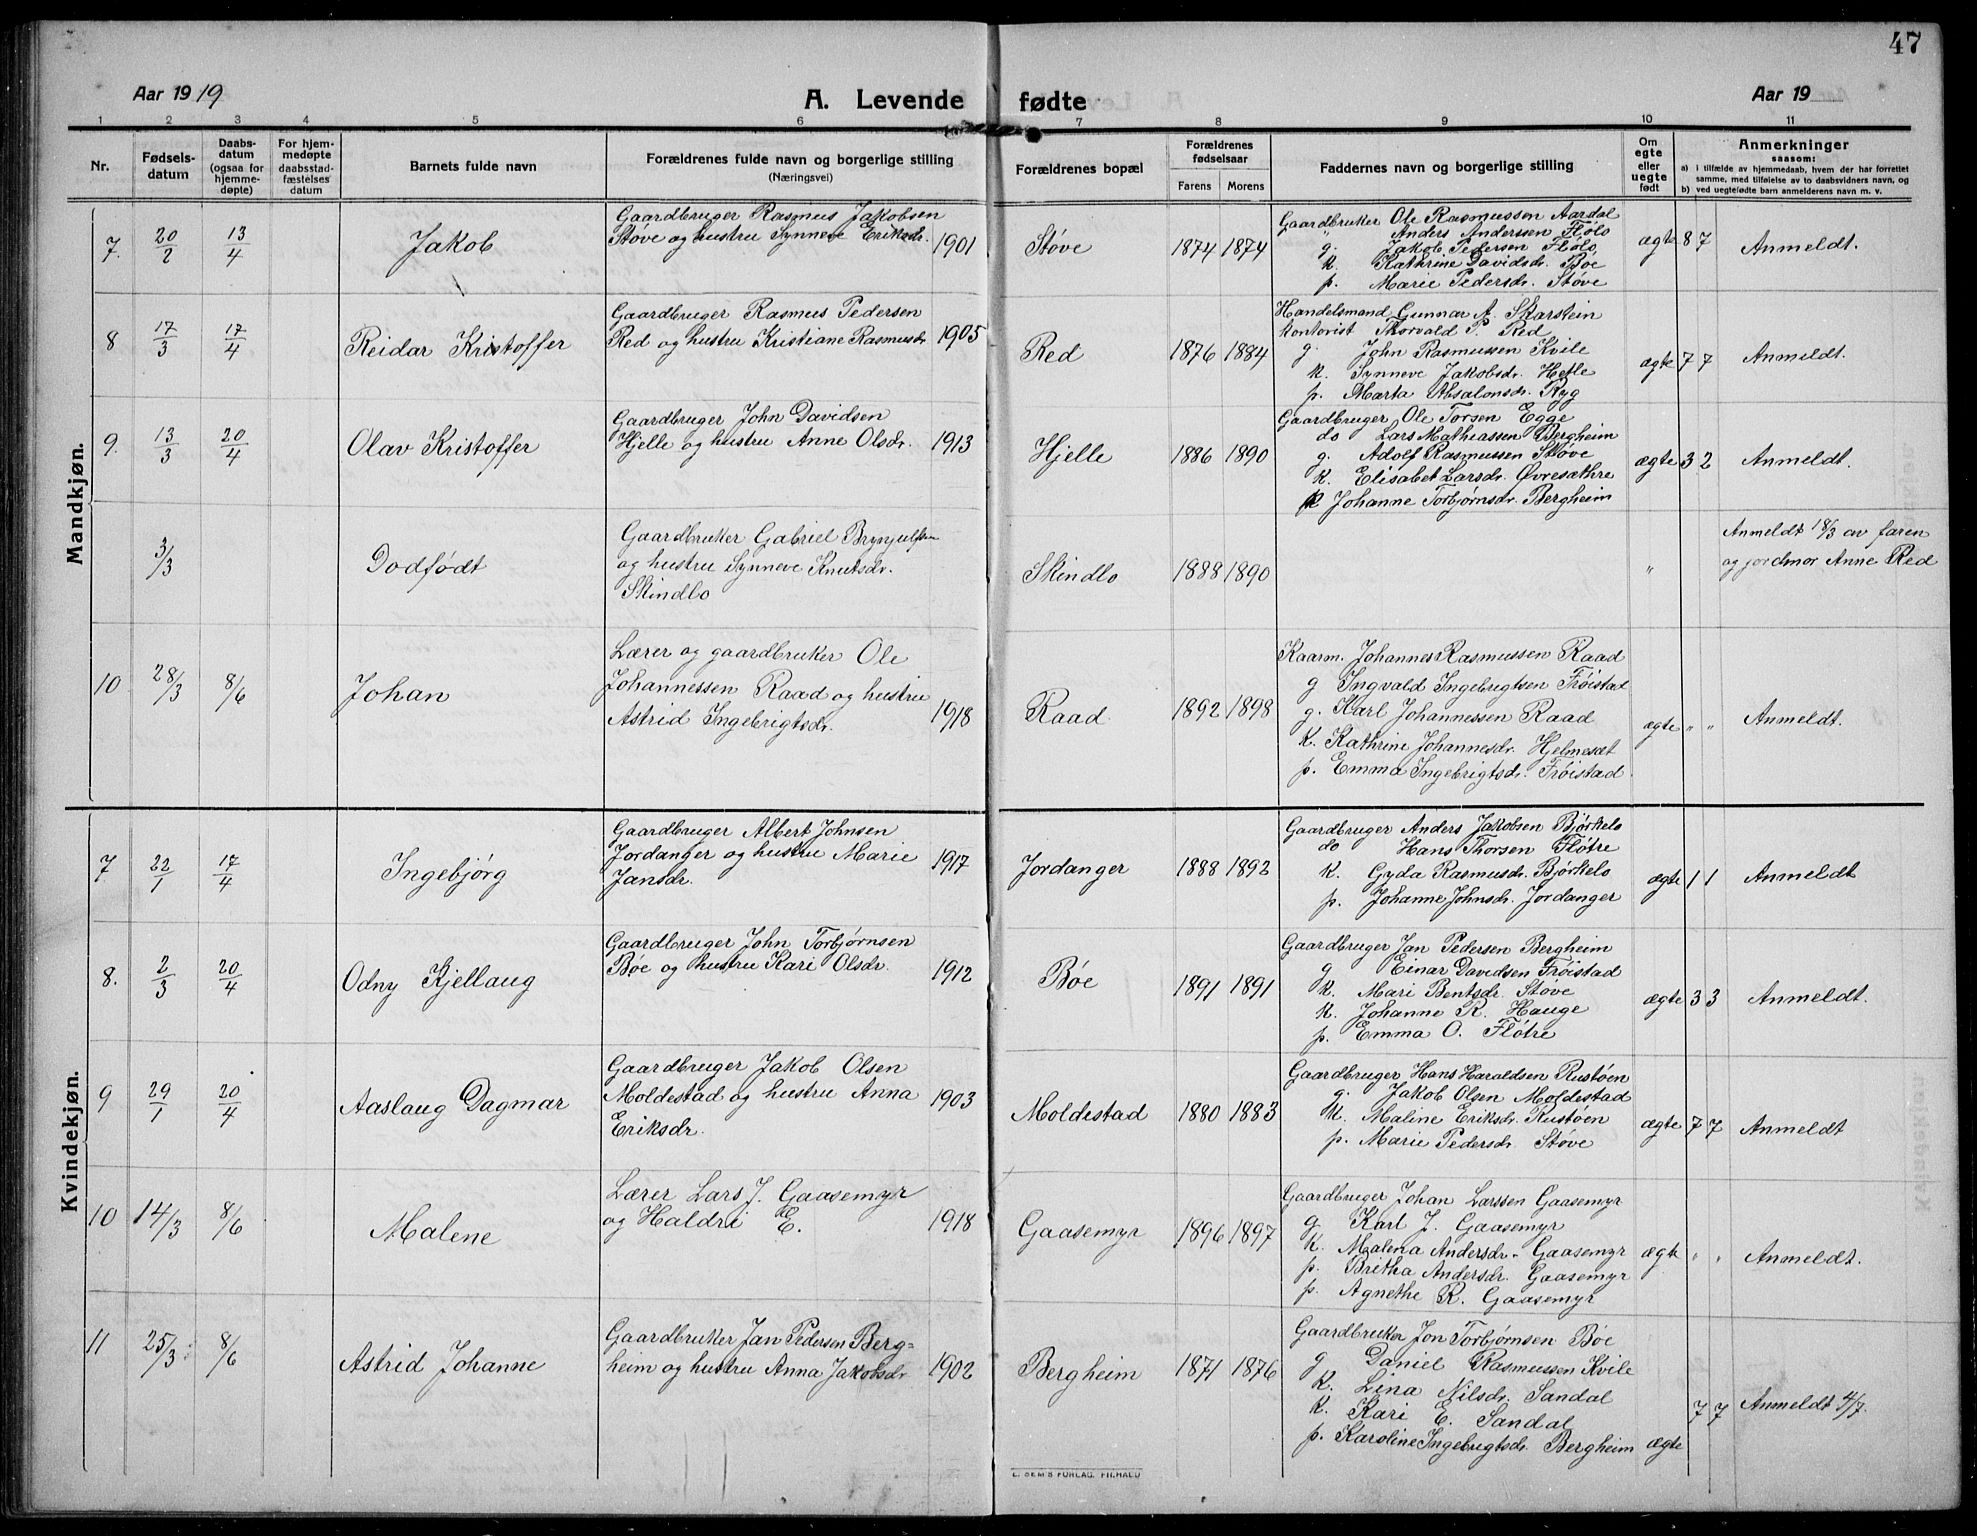 47
Aar 1919
A. Levende fødte
Aar 19
1 2 3 4 5 6 7 8 9 10 11
Nr.
Fødsels-
datum
Daabs-
datum
(ogsaa for
hjemme-
døpte)
For hjem-
medøpte
daabsstad-
fæstelses
datum
Barnets fulde navn
Forældrenes fulde navn og borgerlige stilling
(Næringsvei)
Forældrenes bopæl
Forældrenes
fødselsaar
Farens Morens
Faddernes navn og borgerlige stilling
Om
egte
eller
uegte
født
Anmerkninger
saasom:
a) i tilfælde av hjemmedaab, hvem der har forrettet
samme, med tilføielse av to daabsvidners navn, og
b) ved uegtefødte barn anmelderens navn m. v.
Mandkjøn.
7. 20/2 13/4 Jakob
Gaardbruger Rasmus Jakobsen
Støve og hustru Synneve Eriksdr. 1901
Støve 1874 1874
Gaardbruker Ole Rasmussen Aardal
" Anders Andersen Flølo
g. Jakob Pedersen Flølo
k. Kathrine Davidsdr. Bøe
p. Marie Pedersdr. Støve
ægte 8 7 Anmeldt.
8 17/3 17/4 Reidar Kristoffer
Gaardbruger Rasmus Pedersen
Red og hustru Kristiane Rasmusdr 1905
Red 1876 1884
Handelsmand Gunnar A. Skarstein
Kontorist Thorvald P. Red
g. John Rasmussen Kvile
k. Synneve Jakobsdr. Hefle
p. Marta Absalonsdr. Ryg
ægte 7 7 Anmeldt.
9. 13/3 20/4 Olav Kristoffer
Gaardbruger John Davidsen
Hjelle og hustru Anne Olsdr. 1913
Hjelle 1886 1890
Gaardbruger Ole Torsen Egge
do Lars Mathiassen Bergheim
g. Adolf Rasmussen Støve
k. Elisabet Larsdr. Øvresæthre
k Johanne Torbjørnsdr. Bergheim
ægte 3 2 Anmeldt.
3/3 Dodfødt
Gaardbruker Gabriel Brynjulfsen
og hustru Synneve Knutsdr.
Skindlo
Skindlo 1888 1890
"
Anmeldt 18/3 av faren
og jordmor Anne Red
10 28/3 8/6 Johan
Lærer og gaardbruker Ole
Johannessen Raad og hustru
Astrid Ingebrigtsdr. 1918
Raad 1892 1898
Kaarm. Johannes Rasmussen Raad
g Ingvald Ingebrigtsen Frøistad
g. Karl Johannessen Raad
k. Kathrine Johannesdr. Hjelmesæt
p. Emma Ingebrigtsdr. Frøistad
ægte " " Anmeldt.
Kvindekjøn.
7 22/1 17/4 Ingebjørg
Gaardbruger Albert Johnsen
Jordanger og hustru Marie
Jansdr. 1917
Jordanger 1888 1892
Gaardbruger Anders Jakobsen Bjørkelo
do Hans Thorsen Fløtre
k. Gyda Rasmusdr. Bjørkelo
p. Johanne Johnsdr. Jordanger
ægte 1 1 Anmeldt
8. 2/3 20/4 Odny Kjellaug
Gaardbruger John Torbjørnsen
Bøe og hustru Kari Olsdr. 1912
Bøe 1891 1891
Gaardbruger Jan Pedersen Bergheim
g Einar Davidsen Frøistad
k. Mari Bentsdr. Støve
k. Johanne R. Hauge
p. Emma O. Fløtre
ægte 3 3 Anmeldt.
9 29/1 20/4 Aaslaug Dagmar
Gaardbruger Jakob Olsen
Moldestad og hustru Anna
Eriksdr. 1903
Moldestad 1880 1883
Gaardbruger Hans Haraldsen Rustøen
g. Jakob Olsen Moldestad
k. Maline Eriksdr. Rustøen
p. Marie Pedersdr Støve
ægte 7 7 Anmeldt
10 14/3 8/6 Malene
Lærer Lars J. Gaasemyr
og Haldri E. 1918
Gaasemyr 1896 1897
Gaardbruger Johan Larssen Gaasemyr
g Karl J. Gaasemyr
k. Malena Andersdr. Gaasemyr
p. Britha Andersdr. Gaasemyr
p. Agnethe R. Gaasemyr
ægte " " Anmeldt.
11 25/3 8/6 Astrid Johanne
Gaardbruker Jan Pedersen Berg=
heim og hustru Anna Jakobsdr 1902
Bergheim 1871 1876
Gaardbruker Jon Torbjørnsen Bøe
g Daniel Rasmussen Kvile
k. Lina Nilsdr. Sandal
k. Kari E. Sandal
p. Karoline Ingebrigtsdr. Bergheim
ægte 7 7 Anmeldt 4/7.
E. SEM'S FORLAG, FR.HALD